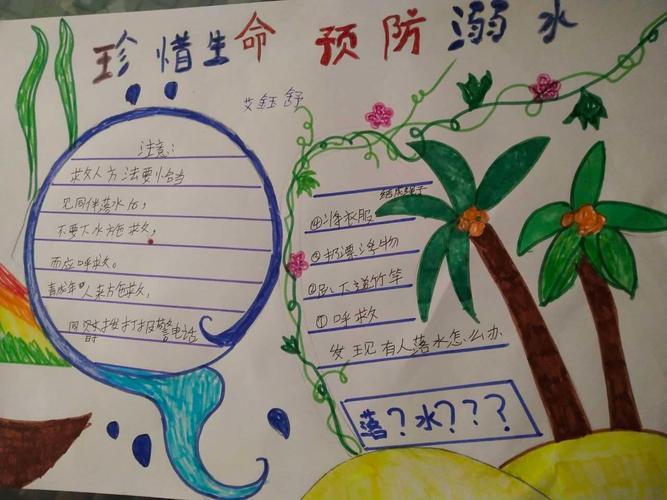 珍惜生命 预防溺水
艾钰舒
注意:
救人方法要恰当
见同伴落水后,
不要下水施救,
而应呼救。
青成年人来方施救,
同时拨打报警电话
结成绳子
④将衣服
③扔漂浮物
②趴下递竹竿
①呼救
发现有人落水怎么办
落?水???